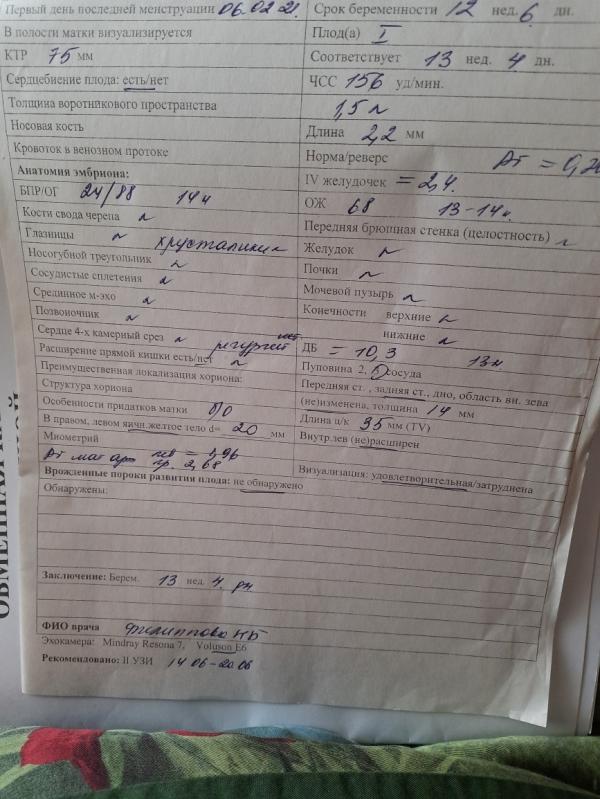 Первый день последней менструации 06.02 21. Срок беременности 12 нед. 6 дн.
В полости матки визуализируется Плод(а) I
КТР 75 мм Соответствует 13 нед. 4 дн.
Сердцебиение плода: есть/нет ЧСС 156 уд/мин.
Толщина воротникового пространства 1,5 N
Носовая кость Длина 2,2 мм
Кровоток в венозном протоке Норма/реверс
Анатомия эмбриона: IV желудочек = 2,4.
БПР/ОГ 24/88 14 н ОЖ 68 13-14н.
Кости свода черепа N Передняя брюшная стенка (целостность) N
Глазницы N хрусталики N Желудок N
Носогубной треугольник N Почки N
Сосудистые сплетения N Мочевой пузырь N
Срединное м-эхо N Конечности верхние N
Позвоночник N нижние N
Сердце 4-х камерный срез N регургит нет ДБ = 10,3 13н
Расширение прямой кишки есть/нет N Пуповина 2, 3 сосуда
Преимущественная локализация хориона: Передняя ст., задняя ст., дно, область вн. зева
Структура хориона (не)изменена, толщина 14 мм
Особенности придатков матки б/о Длина ц/к 35 мм (TV)
В правом, левом яичн.желтое тело d= 20 мм Внутр.зев (не)расширен
Миометрий
мат арт лев = 1,96
пр. 2,68 Визуализация: удовлетворительная/затруднена
Врожденные пороки развития плода: не обнаружено
Обнаружены:
Заключение: Берем. 13 нед. 4. дн
ФИО врача Филиппова НБ
Эхокамера: Mindray Resona 7, Voluson E6
Рекомендовано: II УЗИ 14 06-20.06